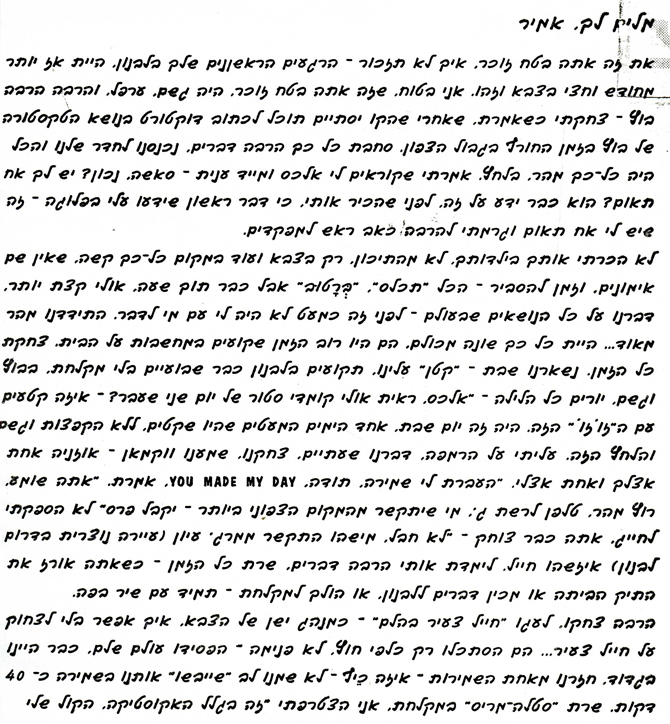 מליח לב, אמיר
את זה אתה בטח זוכר, איך לא תזכור - הרגעים הראשונים שלך בלבנון, היית אז יותר
מחודש וחצי בצבא וזהו. אני בטוח, שזה אתה בטח זוכר, היה גשם, ערפל, והרבה הרבה
בוץ - צחקתי כשאמרת, שאחרי שהקו יסתיים תוכל לכתוב דוקטורט בנושא הטקסטורה
של בוץ בזמן החורף בגבול הצפון. סחבת כל כך הרבה דברים, נכנסנו לחדר שלנו והכל
היה כל-כך מהר, בלחץ. אמרתי שקוראים לי אלכס ומייד ענית - סאשה, נכון? יש לך אח
תאום? הוא כבר ידע על זה, לפני שהכיר אותי, כי דבר ראשון שידעו עלי בפלוגה - זה
שיש לי אח תאום וגרמתי להרבה כאב ראש למפקדים.
לא הכרתי אותך בילדותך, לא מהתיכון, רק בצבא ועוד במקום כל-כך קשה, שאין שם
אימונים, וזמן להסביר - הכל "תכלס", "בְּרָטוּב" אבל כבר תוך שעה, אולי קצת יותר,
דברנו על כל הנושאים שבעולם - לפני זה כמעט לא היה לי עם מי לדבר. התידדנו מהר
מאוד... היית כל כך שונה מכולם, הם היו רוב הזמן שקועים במחשבות על הבית. צחקת
כל הזמן. נשארנו שבת - "קטן" עלינו, תקועים בלבנון כבר שבועיים בלי מקלחת, בבוץ
וגשם, יורים כל הלילה - "אלכס, ראית אולי קומדי סטור של יום שני שעבר? - איזה קטעים
עם ה"זו'זו'" הזה. היה זה יום שבת, אחד הימים המעטים שהיו שקטים, ללא הקפצות וגשם
והלחץ הזה. עליתי על הרמפה, דברנו שעתיים, צחקנו, שמענו ווקמאן - אוזניה אחת
אצלך ואחת אצלי. "העברת לי שמירה, תודה, YOU MADE MY DAY, אמרת. "אתה שומע,
רוץ מהר, טלפן לרשת ג', מי שיתקשר מהמקום הצפוני ביותר - יקבל פרס" לא הספקתי
לחייג, אתה כבר צוחק - "לא חבל, מישהו התקשר ממרג' עיון (עיירה נוצרית בדרום
לבנון) איזשהו חייל. לימדת אותי הרבה דברים, שרת כל הזמן - כשאתה אורז את
התיק הביתה או מכין דברים ללבנון, או הולך למקלחת - תמיד עם שיר בפה.
הרבה צחקו, לעגו "חייל צעיר בהלם" - כמנהג ישן של הצבא, איך אפשר בלי לצחוק
על חייל צעיר... הם הסתכלו רק כלפי חוץ, לא פנימה - הפסידו עולם שלם. כבר היינו
בגדוד, חזרנו מאחת השמירות - איזה כיף - לא שמנו לב "שייבשו" אותנו בשמירה כ- 40
דקות. שרת "סטלה-מריס" במקלחת, אני הצטרפתי "זה בגלל האקוסטיקה, הקול שלי